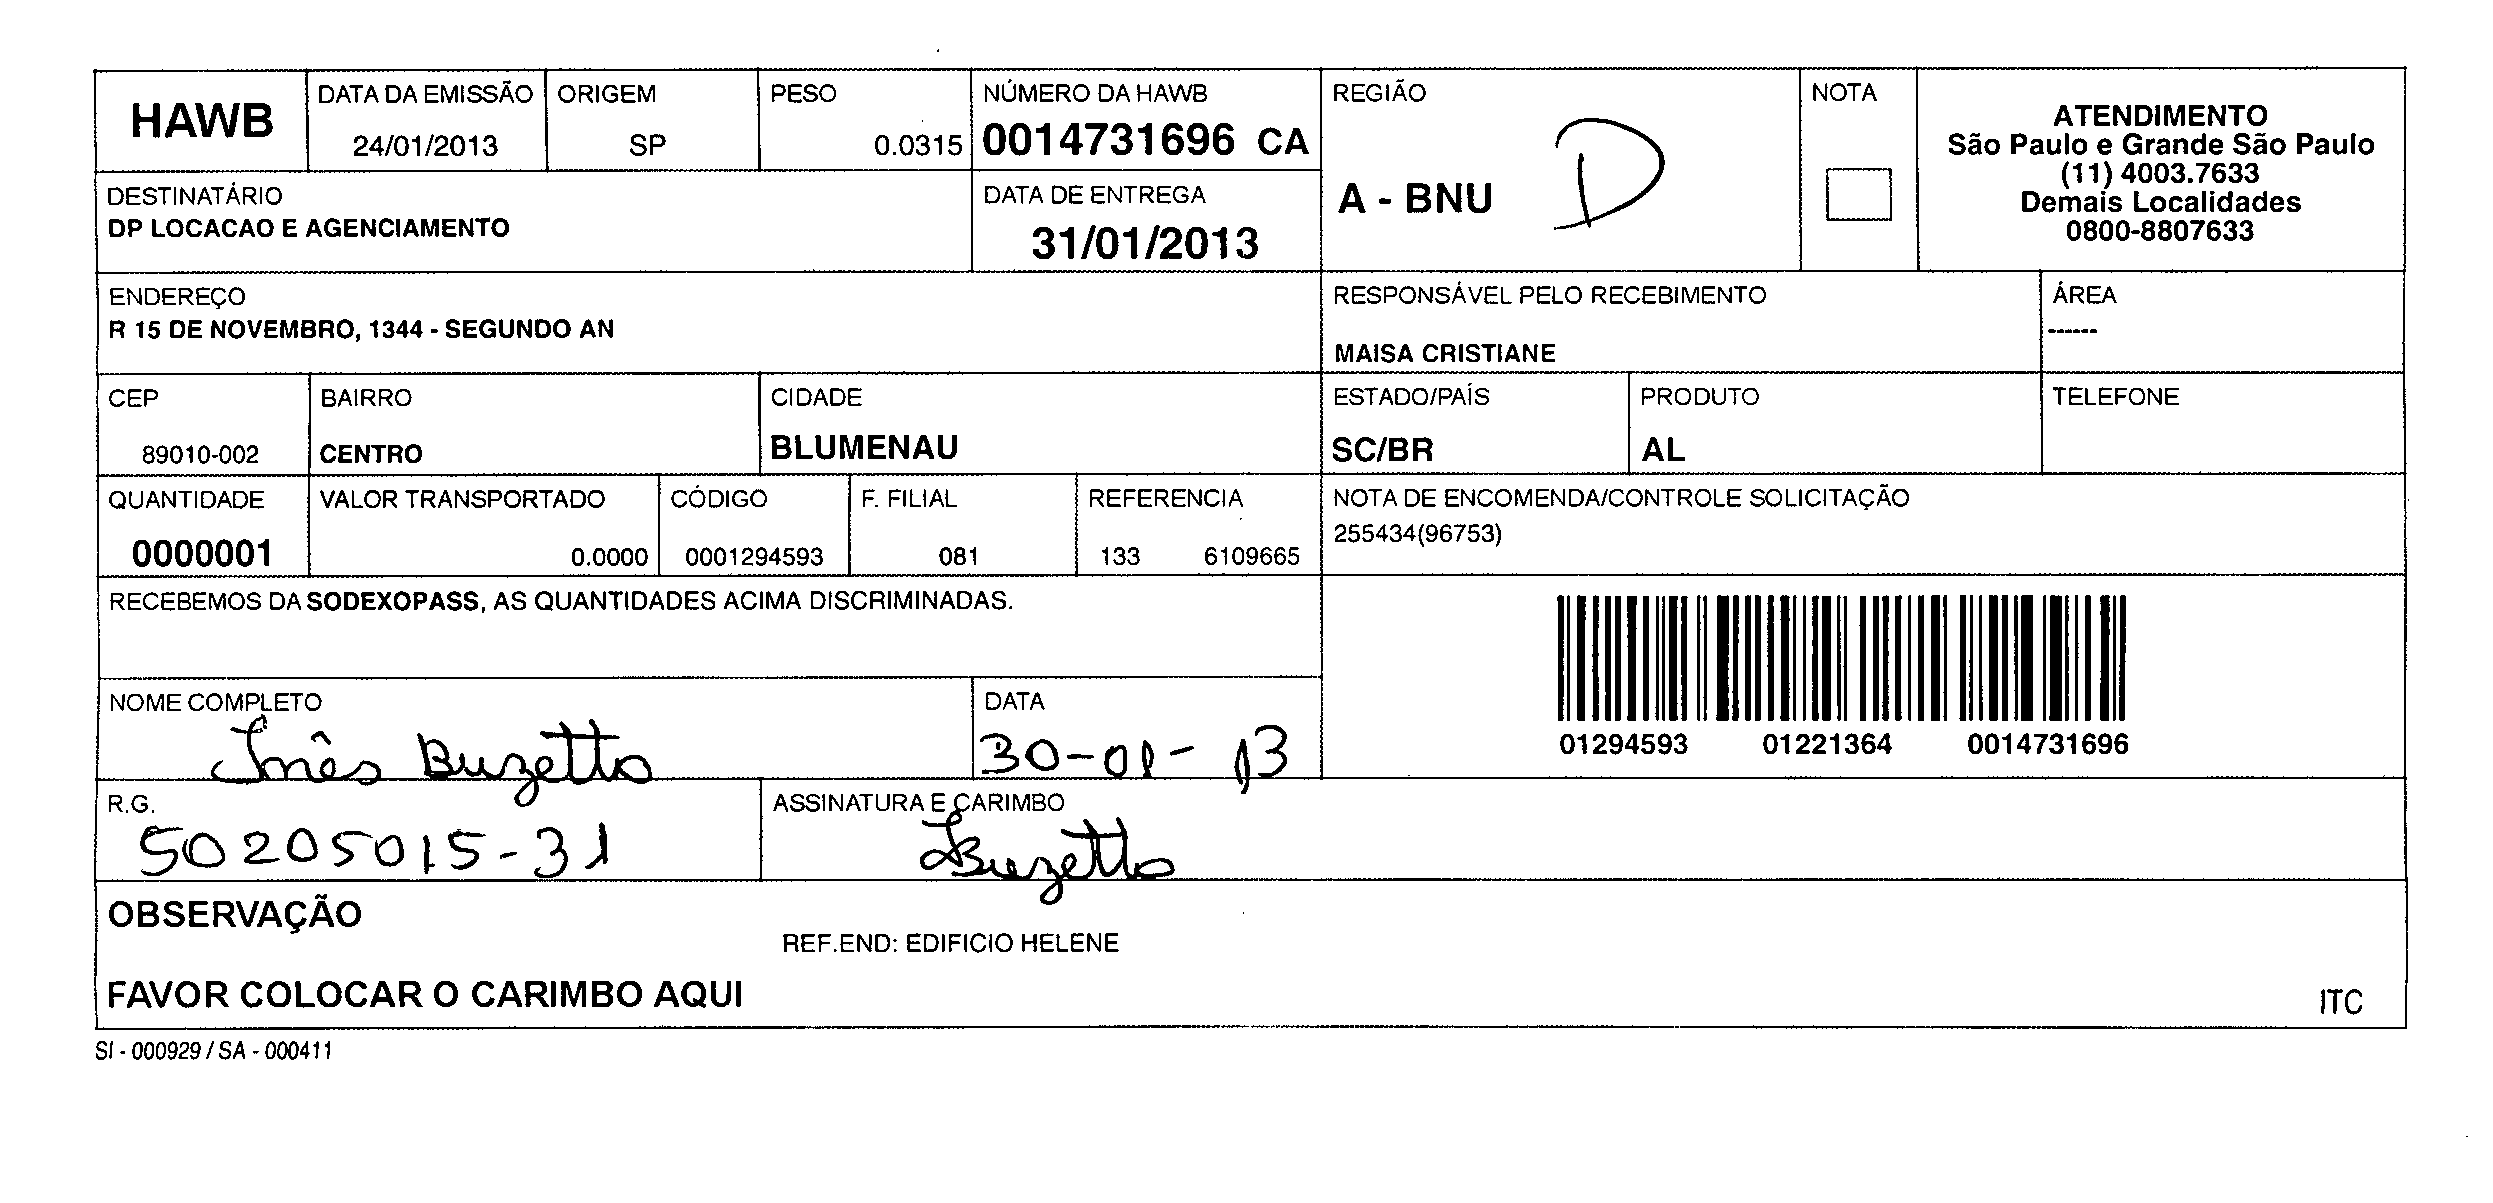 HAWB
DATA DA EMISSÃO
24/01/2013
ORIGEM
SP
PESO
0.0315
NÚMERO DA HAWB
0014731696 CA
REGIÃO
A - BNU D
NOTA
ATENDIMENTO
São Paulo e Grande São Paulo
(11) 4003.7633
Demais Localidades
0800-8807633
DESTINATÁRIO
DP LOCACAO E AGENCIAMENTO
DATA DE ENTREGA
31/01/2013
ENDEREÇO
R 15 DE NOVEMBRO, 1344 - SEGUNDO AN
RESPONSÁVEL PELO RECEBIMENTO
MAISA CRISTIANE
ÁREA
------
CEP
89010-002
BAIRRO
CENTRO
CIDADE
BLUMENAU
ESTADO/PAÍS
SC/BR
PRODUTO
AL
TELEFONE
QUANTIDADE
0000001
VALOR TRANSPORTADO
0.0000
CÓDIGO
0001294593
F. FILIAL
081
REFERENCIA
133 6109665
NOTA DE ENCOMENDA/CONTROLE SOLICITAÇÃO
255434(96753)
RECEBEMOS DA SODEXOPASS, AS QUANTIDADES ACIMA DISCRIMINADAS.
01294593 01221364 0014731696
NOME COMPLETO
Inês Buzetto
DATA
30-01-13
R.G.
50205015-31
ASSINATURA E CARIMBO
IBuzetto
OBSERVAÇÃO
REF.END: EDIFICIO HELENE
FAVOR COLOCAR O CARIMBO AQUI
ITC
SI - 000929 / SA - 000411